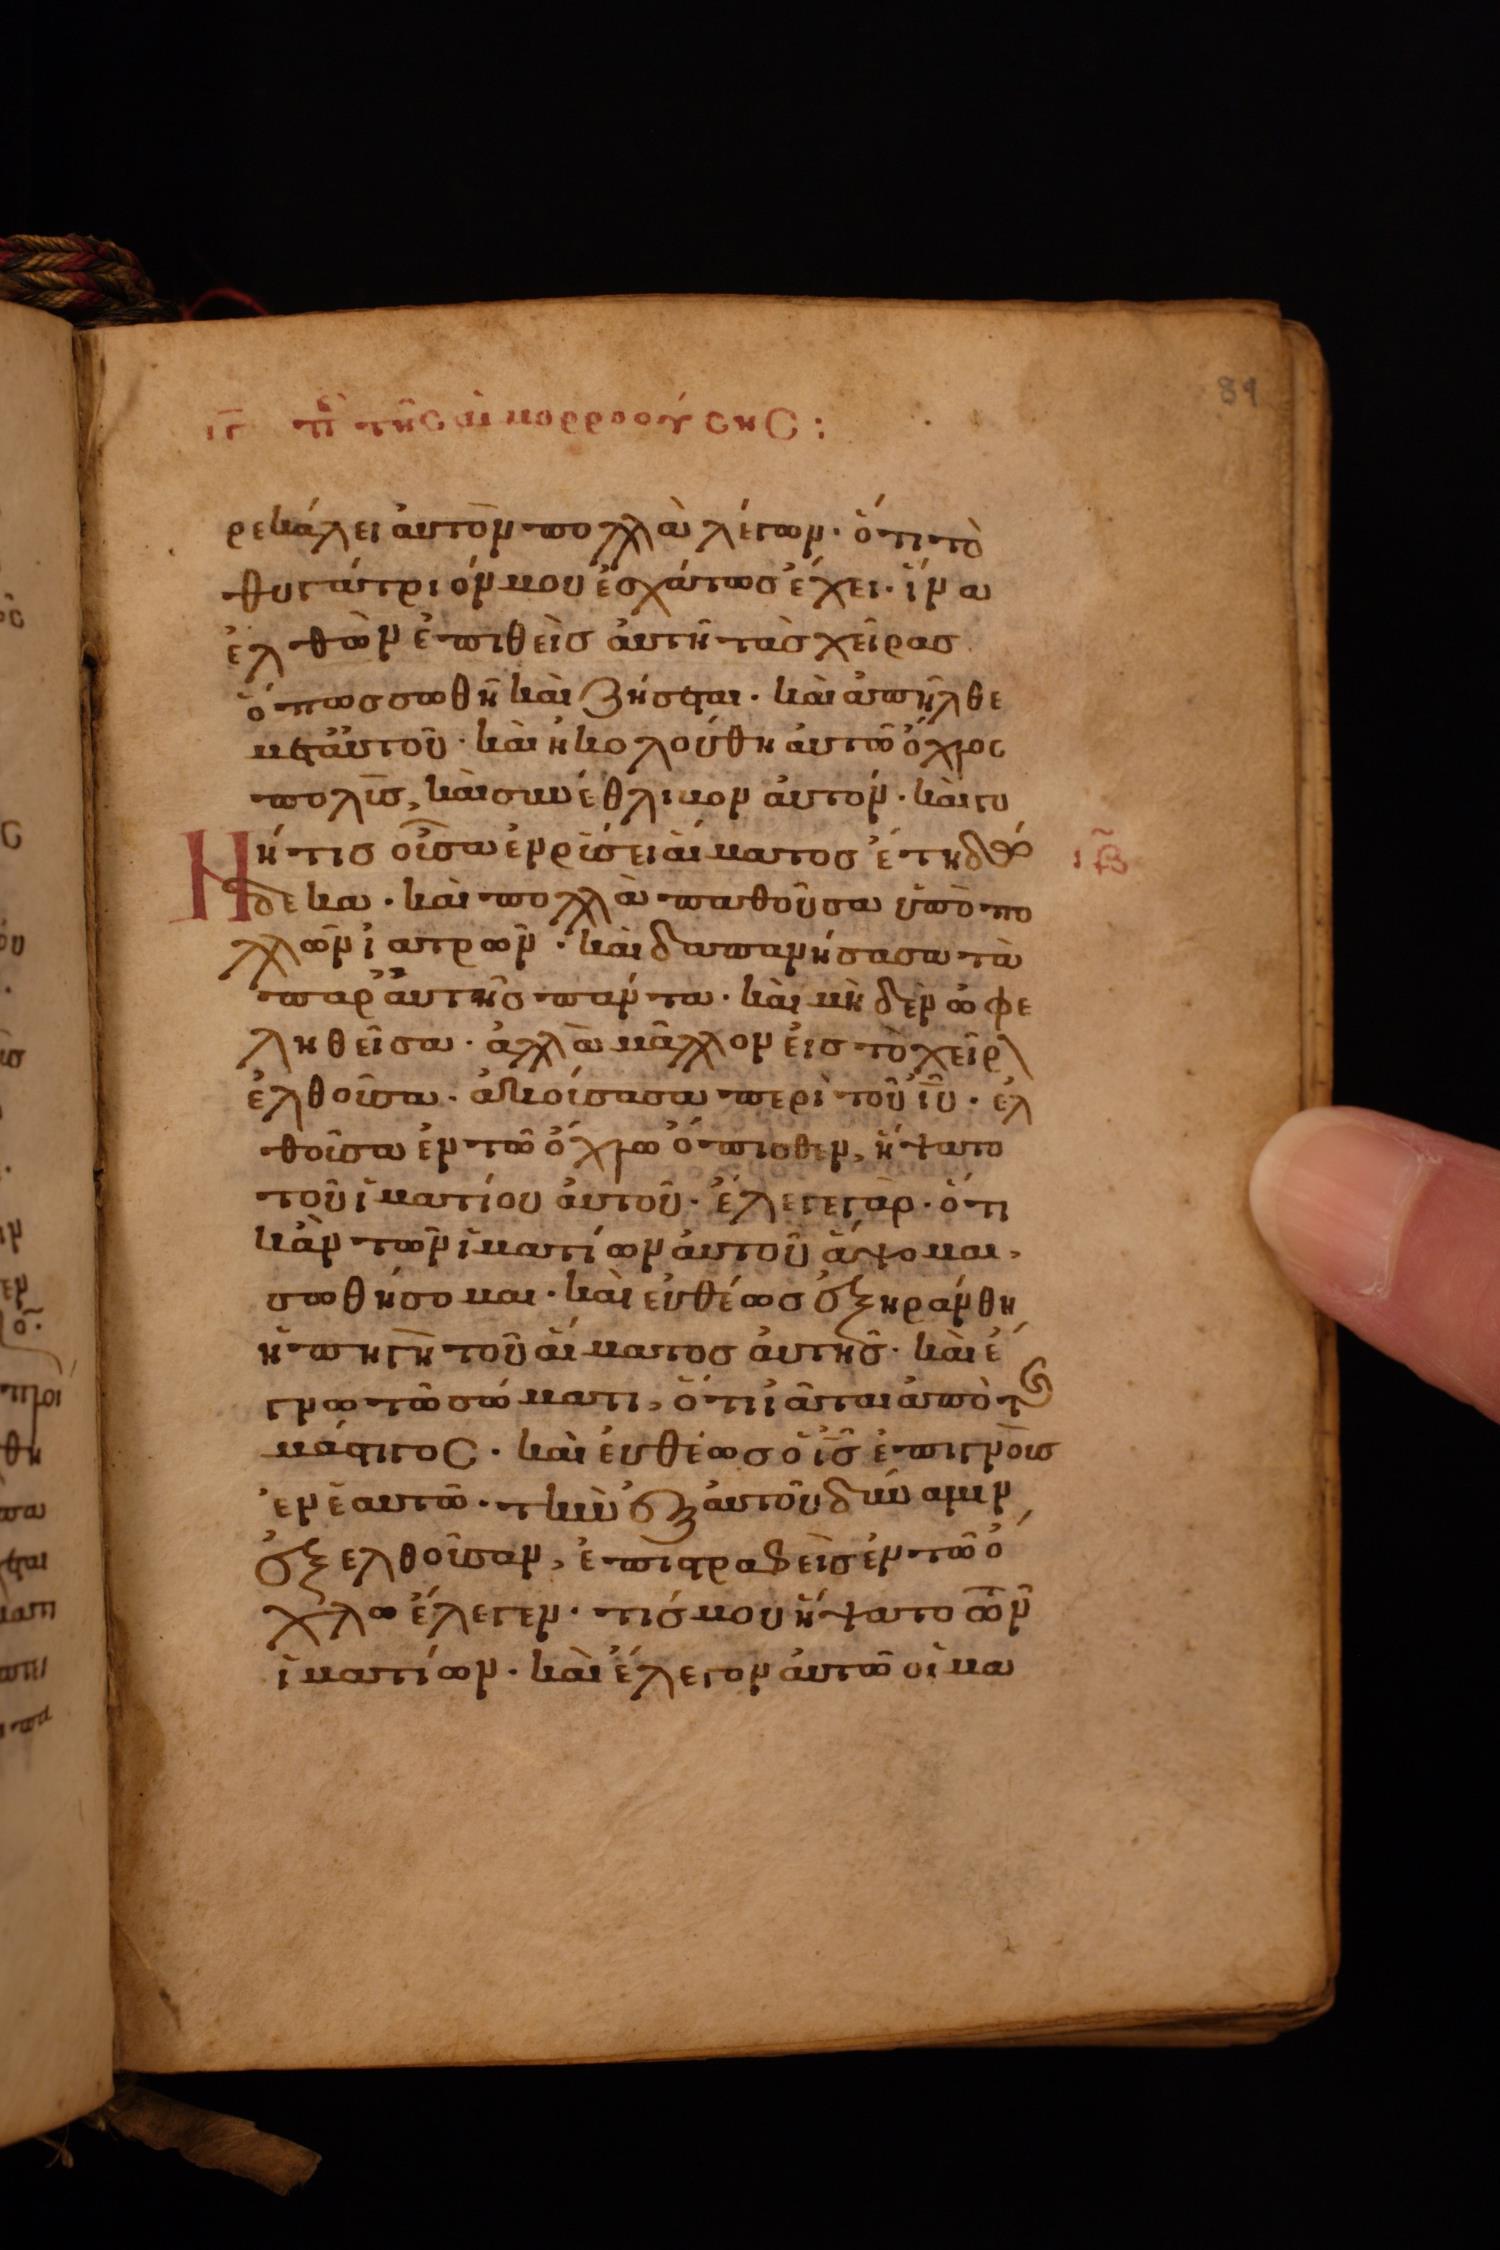 89
ιγ πε τῆς αἱμορροούσης :
ρεκάλει ἀυτὸν πολλὰ λέγων · ὅτι τὸ
θυγάτριόν μου ἐσχάτως ἔχει · ἵνα
ἐλθὼν ἐπιθεὶς ἀυτῆ τὰς χεῖρας
ὅπως σωθῆ καὶ ζήσεται · καὶ ἀπῆλθε
μετἀυτοῦ · καὶ ἠκολούθη ἀυτῶ ὄχλος
πολὺς, καὶ συνέθλιβον ἀυτόν · καὶ γυ
Ηή τις οὖσα ἐν ρύσει ἅιματος ἔτη δώ
ιβ
δεκα · καὶ πολλὰ παθοῦσα ὑπὸ πο
λλῶν ϊατρῶν · καὶ δαπανήσασα τὰ
παρἀυτῆς πάντα · καὶ μὴδὲν ὠφε
ληθεῖσα · ἀλλὰ μᾶλλον ἐις τὸ χεῖρ
ἐλθοῦσα · ἀκούσασα περὶ τοῦ ἰῦ · ἐλ
θοῦσα ἐν τῶ ὄχλω ὄπισθεν, ἥψατο
τοῦ ἱματίου ἀυτοῦ · ἔλεγε γὰρ · ὅτι
κἀν τῶν ἱματίων ἀυτοῦ ἅψομαι,
σωθήσομαι · καὶ ἐυθέως ἐξηράνθη
ἡ πηγὴ τοῦ ἅιματος ἀυτῆς · καὶ ἔ
γνω τῶ σώματι, ὅτι ἴαται ἀπὸ τ
μάστιγος · καὶ ἐυθέως ὁ ἰς ἐπιγνοὺς
ἐν ἑαυτῶ · τὴν ἐξ ἀυτοῦ δύναμιν
ἐξελθοῦσαν, ἐπιστραφεὶς ἐν τῶ ὄ
χλω ἔλεγεν · τίς μου ἥψατο τῶν
ἱματίων · καὶ ἔλεγον ἀυτῶ οἱ μα